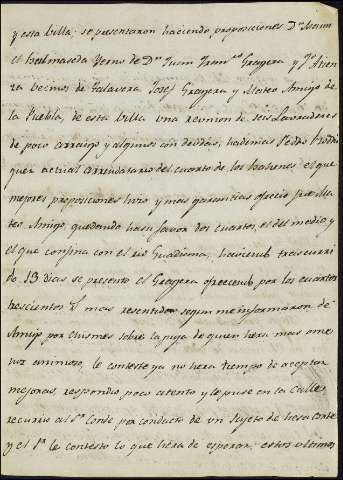 y esta billa; se presentaron haciendo proposiciones Dn. Manuel
Balmaseda Yerno de Dn. Juan Franco. Grajera y
vecinos de Talavera Josef Grajera y Mateo Amigo de
la Puebla, de esta billa una reunion de seis Labradores
de poco arraigo y algunos con deudas, hademas Pedro
actual arrendatario del cuarto de los bahenes: el que
mejores proposiciones hizo y mas garantias ofrecio fue Ma
teo Amigo, quedando ha su favor dos cuartos el del medio y
el que confina con el rio Guadiana; haviendo trascurri
do 13 dias se presento el Grajera ofreciendo por los cuartos
trescientos mas resentido segun me informaron de
Amigo por chismes sobre la puja de quien hera mas ome
nos animoso, le conteste ya no hera tiempo de aceptar
mejoras, respondio poco atento y le puse en la calle;
recurio al Sr. Conde por conducto de un sujeto de hesa corte
y el Sr. le contesto lo que hera de esperar; estos ultimos